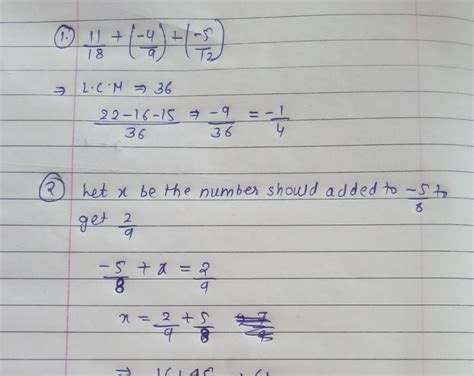 1. 11/18 + (-4/9) + (-5/12)
⇒ L.C.M ⇒ 36
22-16-15/36 ⇒ -9/36 = -1/4
2 Let x be the number should added to -5/8 to
get 2/9
-5/8 + x = 2/9
x = 2/9 + 5/8